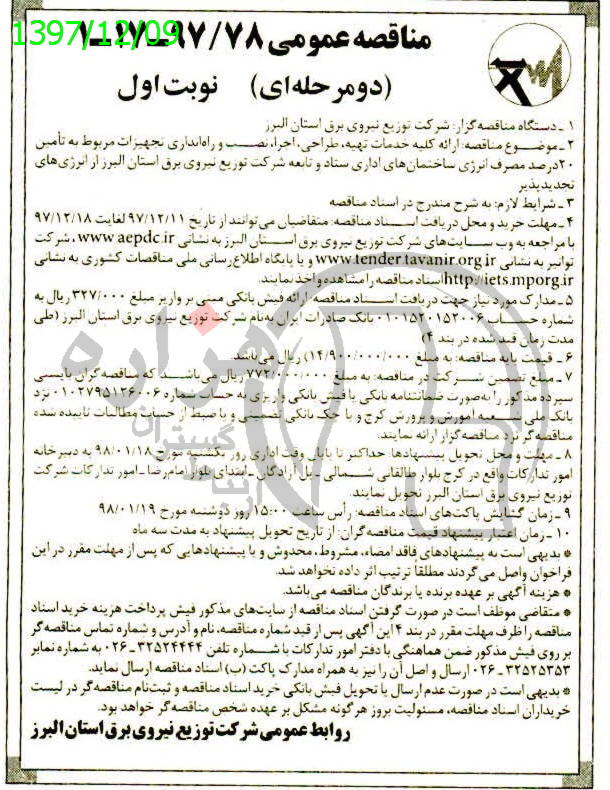 1397/12/09
مناقصه عمومی ۹۷/۷۸ـ۱۷ـ۱
(دومرحله‌ای) نوبت اول
۱ـ دستگاه مناقصه‌گزار: شرکت توزیع نیروی برق استان البرز
۲ـ موضـوع مناقصه: ارائه کلیه خدمات تهیه، طراحی، اجرا، نصب و راه‌اندازی تجهیزات مربوط به تأمین
۲۰درصد مصرف انرژی ساختمان‌های اداری ستاد و تابعه شرکت توزیع نیروی برق استان البرز از انرژی‌های
تجدیدپذیر
۳ـ شرایط لازم: به شرح مندرج در اسناد مناقصه
۴ـ مهلت خرید و محل دریافت اسـناد مناقصه: متقاضیان می‌توانند از تاریخ ۹۷/۱۲/۱۱ لغایت ۹۷/۱۲/۱۸
با مراجعه به وب سـایت‌های شرکت توزیع نیروی برق اسـتان البرز به نشانی www.aepdc.ir، شرکت
توانیر به نشانی www.tender.tavanir.org.ir و یا پایگاه اطلاع‌رسانی ملی مناقصات کشوری به نشانی
http://iets.mporg.ir اسناد مناقصه را مشاهده و اخذ نمایند.
۵ـ مدارک مورد نیاز جهت دریافت اسـناد مناقصه: ارائه فیش بانکی مبنی بر واریز مبلغ ۳۲۷/۰۰۰ ریال به
شماره حساب ۰۱۰۱۵۲۰۱۵۲۰۰۶ بانک صادرات ایران به‌نام شرکت توزیع نیروی برق استان البرز (طی
مدت زمان قید شده در بند ۴)
۶ـ قیمت پایه مناقصه: به مبلغ (۱۴/۹۰۰/۰۰۰/۰۰۰) ریال می‌باشد.
۷ـ مبلغ تضمین شـرکت در مناقصه: به مبلغ ۷۷۲/۰۰۰/۰۰۰ ریال می‌باشـد که مناقصه‌گران بایستی
سپرده مذکور را به‌صورت ضمانتنامه بانکی یا فیش بانکی واریزی به حساب شماره ۰۱۰۲۷۹۵۱۲۶۰۰۶ نزد
بانک ملی شـعبه آموزش و پرورش کرج و یا چک بانکی تضمینی و یا ضبط از حساب مطالبات تأییده شده
مناقصه‌گر نزد مناقصه‌گزار ارائه نمایند.
۸ـ مهلت و محل تحویل پیشنهادها: حداکثر تا پایان وقت اداری روز یکشنبه مورخ ۹۸/۰۱/۱۸ به دبیرخانه
امور تدارکات واقع در کرج بلوار طالقانی شـمالی ـ پل آزادگان ـ ابتدای بلوار امام‌رضا ـ امور تدارکات شرکت
توزیع نیروی برق استان البرز تحویل نمایند.
۹ـ زمان گشایش پاکت‌های اسناد مناقصه: رأس ساعت ۱۵:۰۰ روز دوشنبه مورخ ۹۸/۰۱/۱۹
۱۰ـ زمان اعتبار پیشنهاد قیمت مناقصه‌گران: از تاریخ تحویل پیشنهاد به مدت سه ماه
* بدیهی است به پیشنهادهای فاقد امضاء، مشروط، مخدوش و یا پیشنهادهایی که پس از مهلت مقرر در این
فراخوان واصل می‌گردند مطلقاً ترتیب اثر داده نخواهد شد.
* هزینه آگهی بر عهده برنده یا برندگان مناقصه می‌باشد.
* متقاضی موظف است در صورت گرفتن اسناد مناقصه از سایت‌های مذکور فیش پرداخت هزینه خرید اسناد
مناقصه را ظرف مهلت مقرر در بند ۴ این آگهی پس از قید شماره مناقصه، نام و آدرس و شماره تماس مناقصه‌گر
بر روی فیش مذکور ضمن هماهنگی با دفتر امور تدارکات با شـماره تلفن ۳۲۵۲۴۴۴۴ـ۰۲۶ به شماره نمابر
۳۲۵۲۵۳۵۳ـ۰۲۶ ارسال و اصل آن را نیز به همراه مدارک پاکت (ب) اسناد مناقصه ارسال نماید.
* بدیهی است در صورت عدم ارسال یا تحویل فیش بانکی خرید اسناد مناقصه و ثبت‌نام مناقصه‌گر در لیست
خریداران اسناد مناقصه، مسئولیت بروز هرگونه مشکل بر عهده شخص مناقصه‌گر خواهد بود.
روابط عمومی شرکت توزیع نیروی برق استان البرز